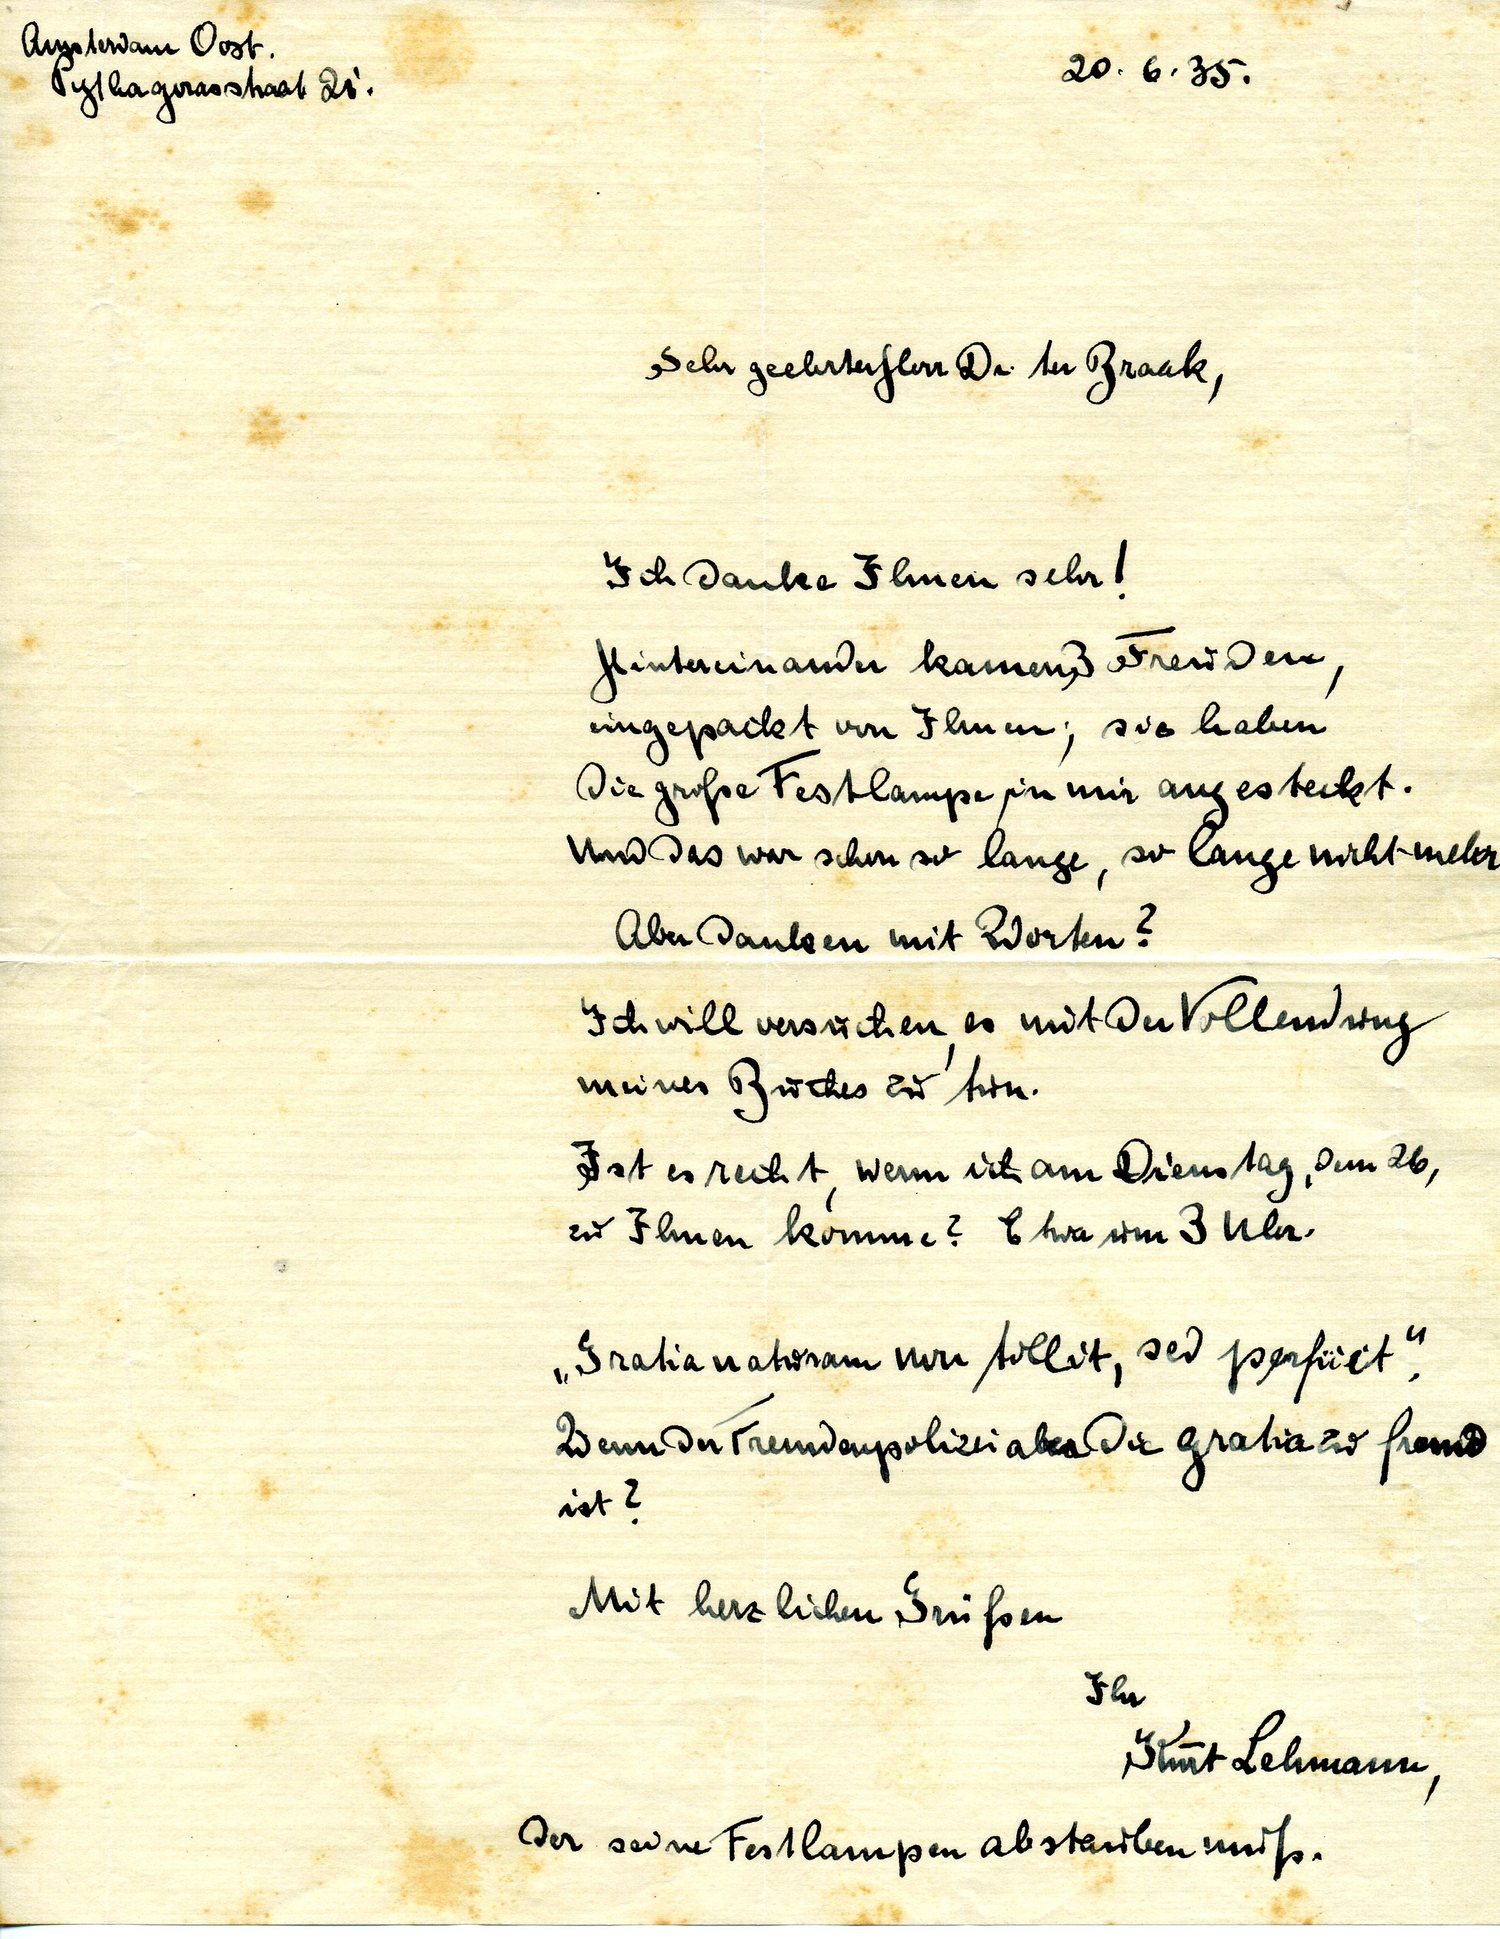 Amsterdam Oost.
Pythagorasstraat 21.
20. 6. 35.
Sehr geehrter Herr Dr. ter Braak,
Ich danke Ihnen sehr!
Hintereinander kamen 3 Freuden,
eingepackt von Ihnen; sie haben
die große Festlampe in mir angesteckt.
Und das war schon so lange, so lange nicht mehr
Aber danken mit Worten?
Ich will versuchen, es mit der Vollendung
meines Buches zu tun.
Ist es recht, wenn ich am Dienstag, dem 26,
zu Ihnen komme? Etwa um 3 Uhr.
„Gratia naturam non tollit, sed perficit“.
Wenn der Fremdenpolizei aber die gratia zu fremd
ist?
Mit herzlichen Grüßen
Ihr
Kurt Lehmann,
der seine Festlampen abstauben muß.